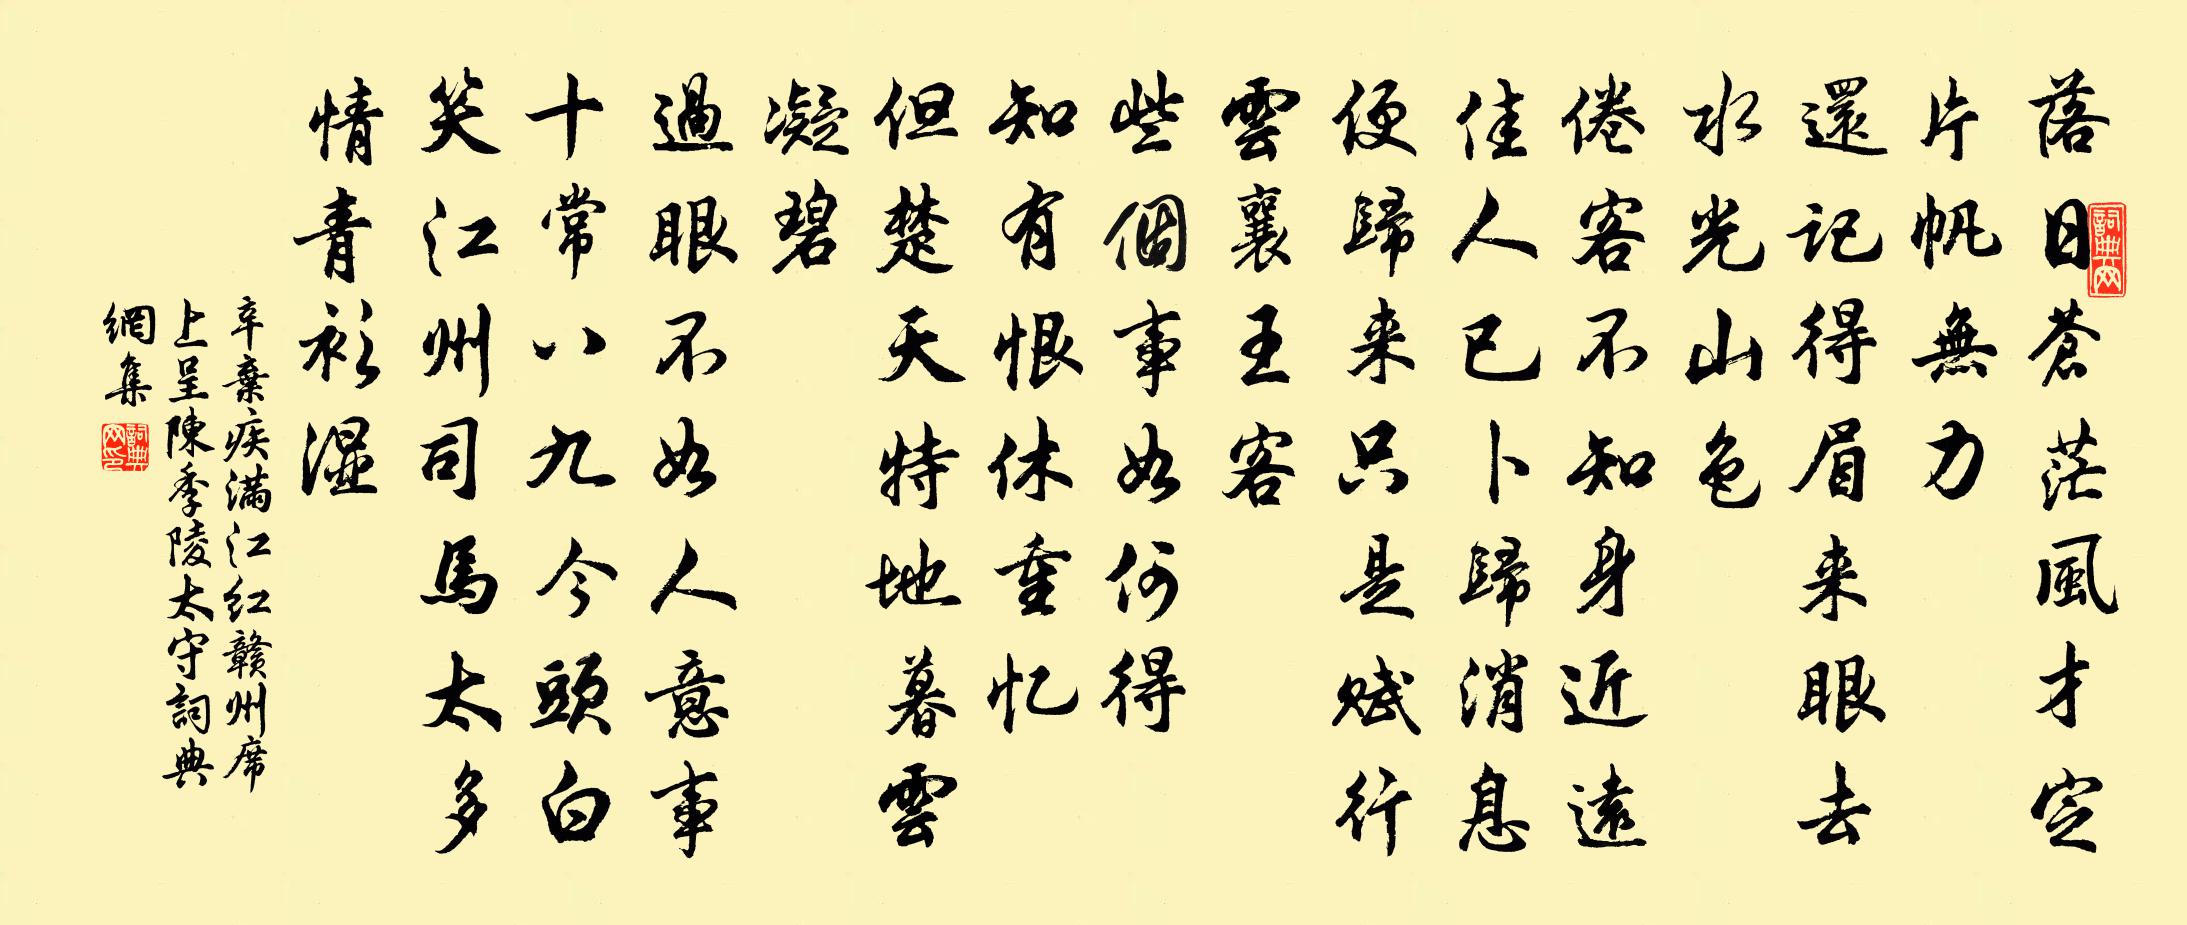 落日蒼茫風才定
片帆無力
還記得眉来眼去
水光山色
倦客不知身近遠
佳人已卜歸消息
便歸来只是赋行
雲襄王客
些個事如何得
知有恨休重忆
但楚天特地暮雲
凝碧
過眼不如人意事
十常八九今頭白
笑江州司馬太多
情青衫湿
辛棄疾满江红赣州席
上呈陳季陵太守詞典
網集
詞典网
詞典网印